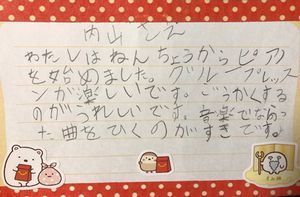 内山 さえ
わたしはねんちょうからピアノ
を始めました。グループレッス
ンが楽しいです。ごうかくする
のがうれしいです。音楽でなら
った曲をひくのがすきです♪